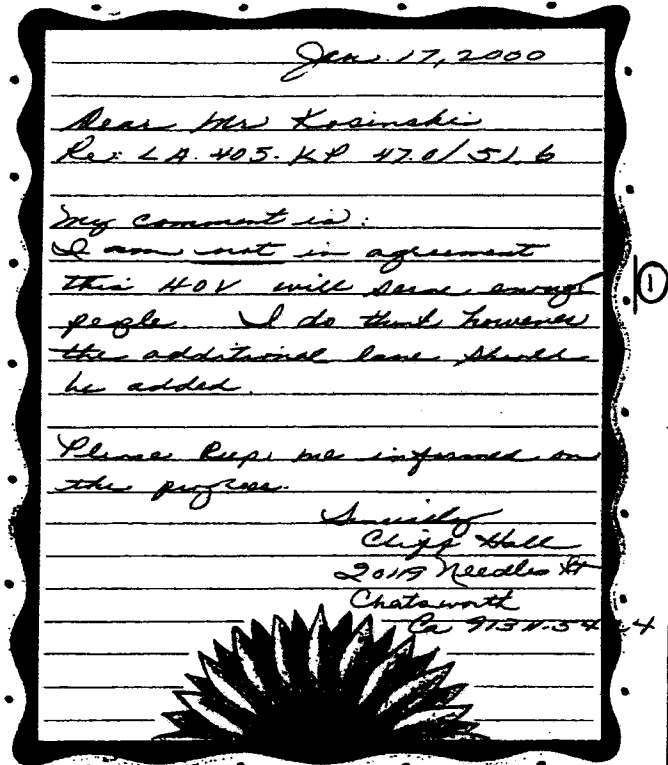 Jan. 17, 2000
Dear Mr Kosinski
Re: LA. 405. KP 47.0/51.6
My comment is:
I am not in agreement
this HOV will serve enough
people. I do think however
the additional lane should
be added.
①
Please keep me informed on
the progress.
Sincerely
Cliff Hall
Needles St
Chatsworth
Ca